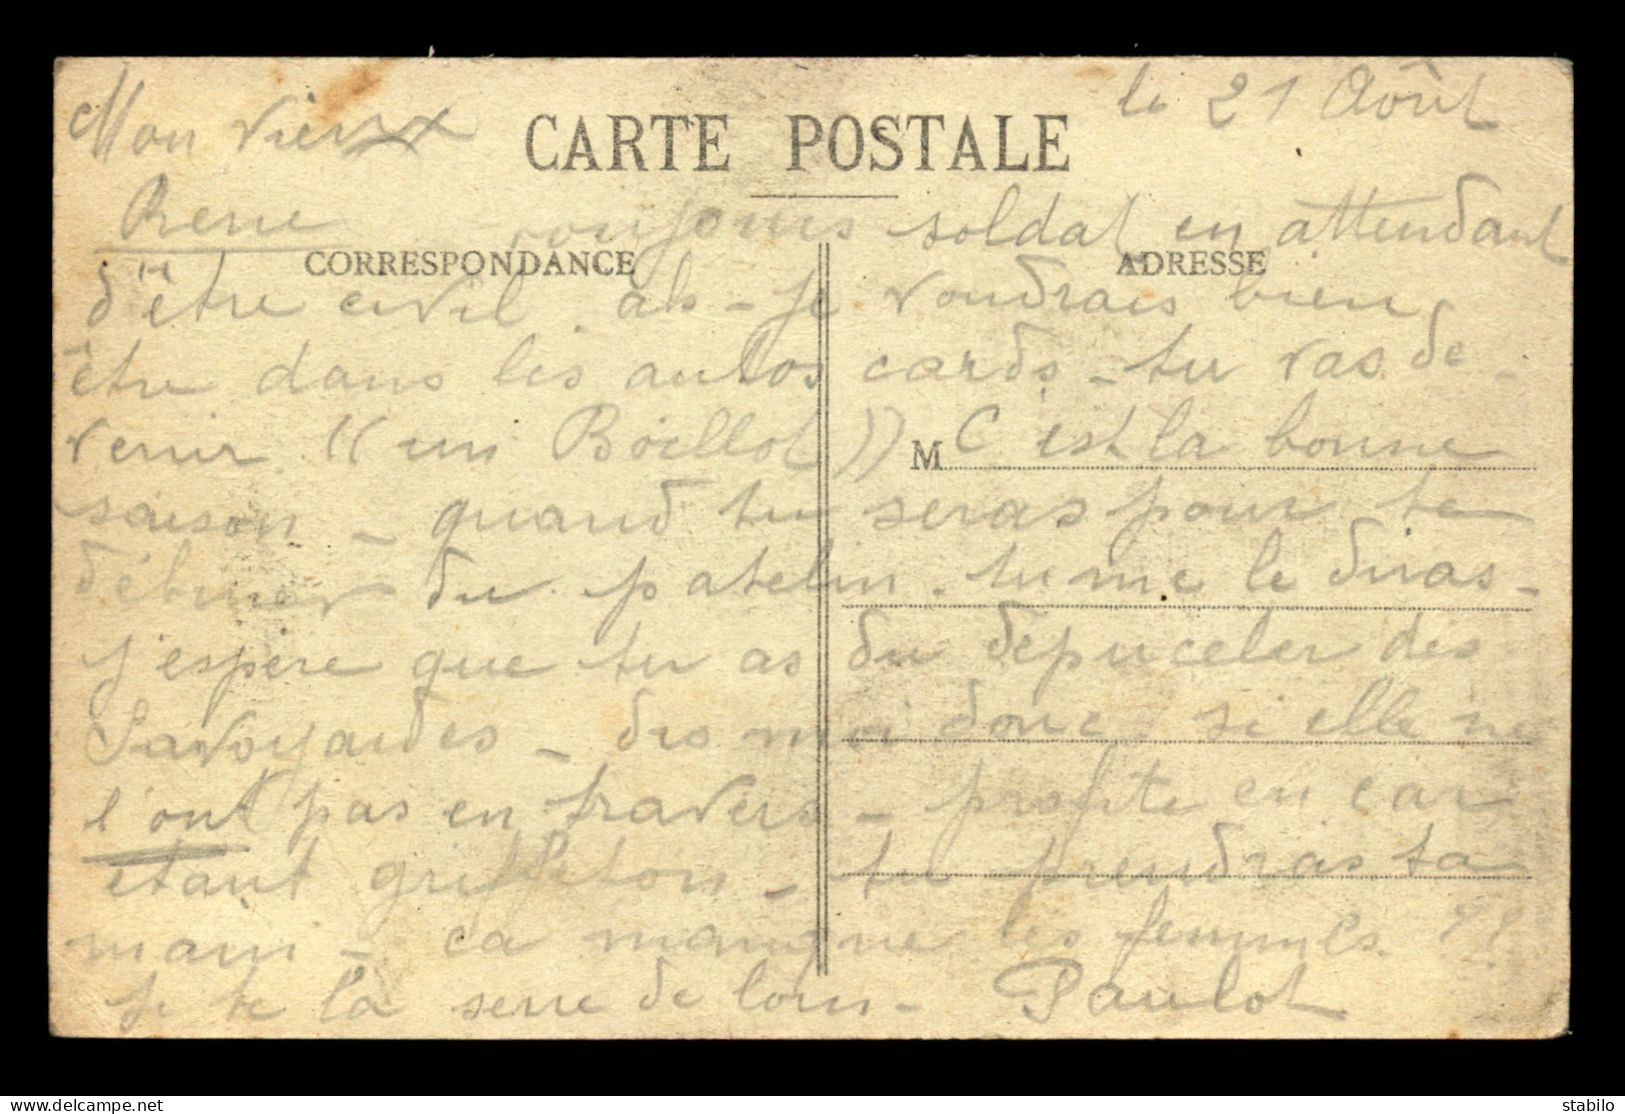 le 21 Août
Mon vieux
CARTE POSTALE
René toujours soldat en attendant
CORRESPONDANCE
ADRESSE
d'être civil. ah - je voudrais bien
être dans les autos cards - tu vas de-
venir (( un Boillot )) C'est la bonne
M
saison - quand tu seras pour te
débiner du patelin. tu me le diras -
j'espère que tu as du dépuceler des
Savoyardes - dis moi donc. si elle ne
l'ont pas en travers - profite en car
étant griffeton - tu prendras ta
main - ca manque les femmes ??
je te la serre de loin - Paulot
stabilo